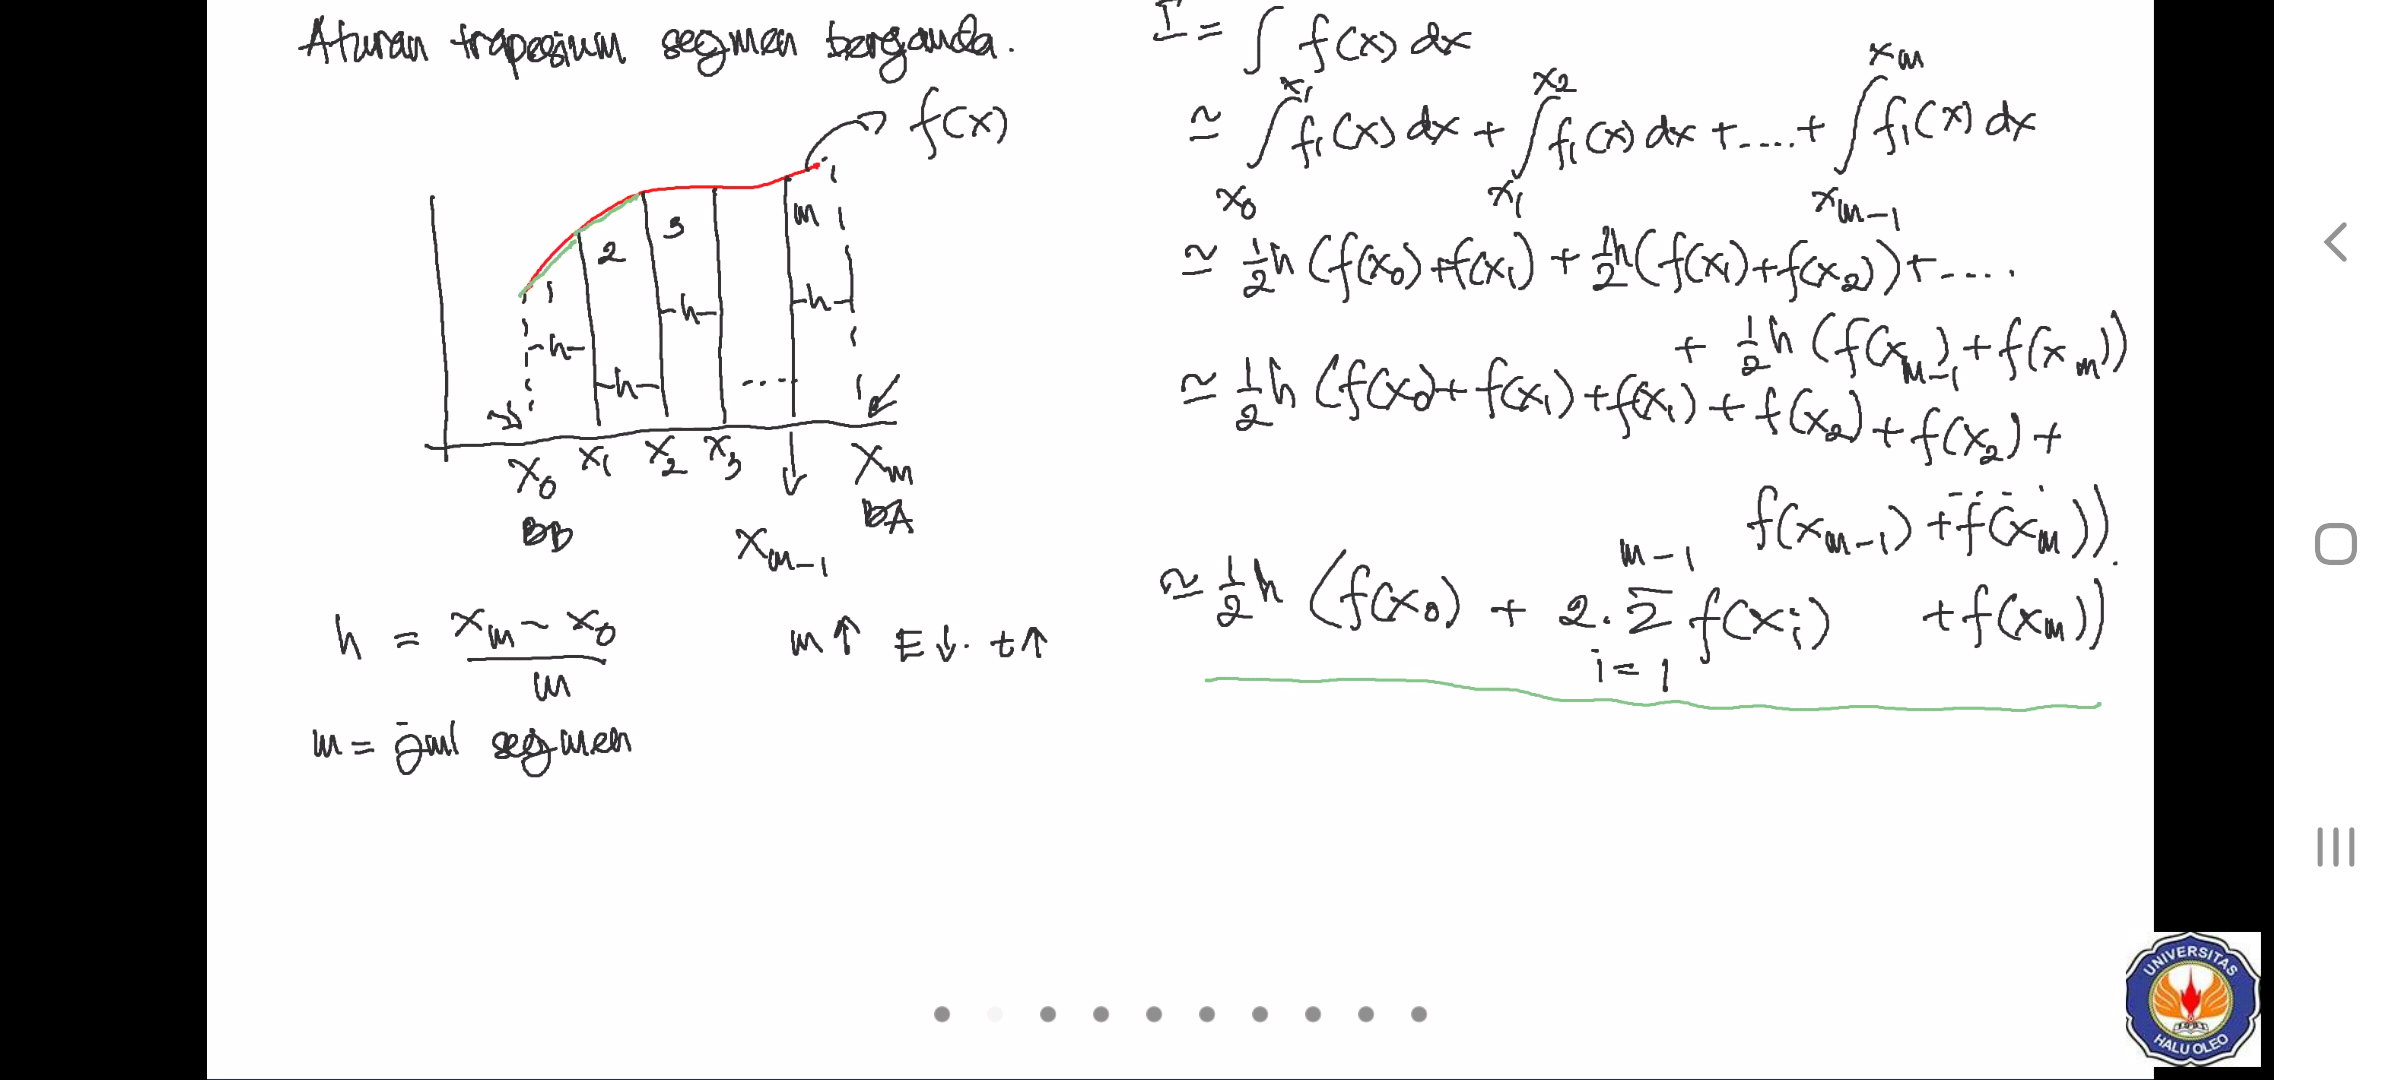 Aturan trapesium segmen berganda.
f(x)
1
2
3
m
h
h
h
h
....
x₀ x₁ x₂ x₃ xₘ
BB BA
xₘ₋₁
h = (xₘ - x₀) / m
m↑ E↓. t↑
m = jml segmen
I = ∫ f(x) dx
≃ ∫_{x₀}^{x₁} f₁(x) dx + ∫_{x₁}^{x₂} f₁(x) dx + ..... + ∫_{xₘ₋₁}^{xₘ} f₁(x) dx
≃ ½h (f(x₀) + f(x₁)) + ½h (f(x₁) + f(x₂)) + ....
+ ½h (f(xₘ₋₁) + f(xₘ))
≃ ½h (f(x₀) + f(x₁) + f(x₁) + f(x₂) + f(x₂) + ....
f(xₘ₋₁) + f(xₘ)).
≃ ½h (f(x₀) + 2. Σ_{i=1}^{m-1} f(xᵢ) + f(xₘ))
UNIVERSITAS
HALU OLEO